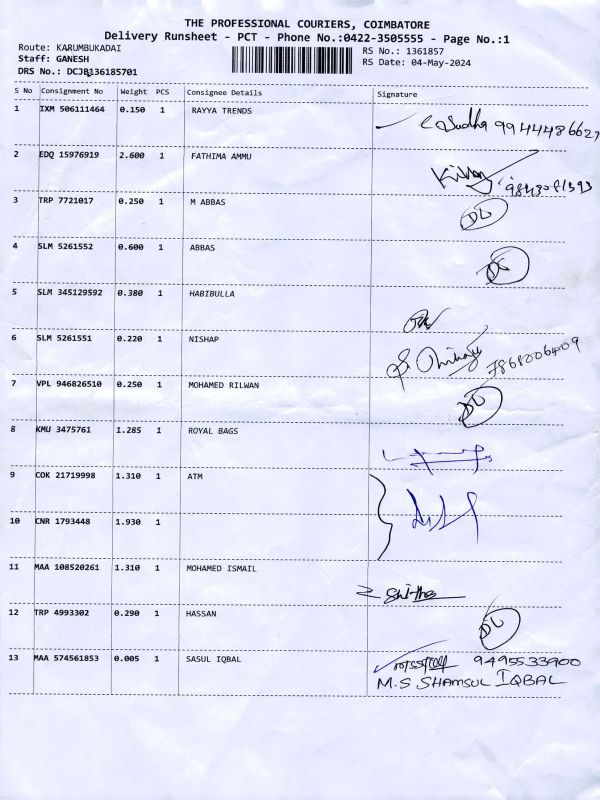 THE PROFESSIONAL COURIERS, COIMBATORE
Delivery Runsheet - PCT - Phone No.:0422-3505555 - Page No.:1
Route: KARUMBUKADAI
RS No.: 1361857
Staff: GANESH
RS Date: 04-May-2024
DRS No.: DCJB136185701
S No Consignment No Weight PCS Consignee Details Signature
1 IXM 506111464 0.150 1 RAYYA TRENDS
Sudha 9944486627
2 EDQ 15976919 2.600 1 FATHIMA AMMU
3 TRP 7721017 0.250 1 M ABBAS
DL
4 SLM 5261552 0.600 1 ABBAS
DL
5 SLM 345129592 0.380 1 HABIBULLA
6 SLM 5261551 0.220 1 NISHAP
7 VPL 946826510 0.250 1 MOHAMED RILWAN
DL
8 KMU 3475761 1.285 1 ROYAL BAGS
9 COK 21719998 1.310 1 ATM
10 CNR 1793448 1.930 1
11 MAA 108520261 1.310 1 MOHAMED ISMAIL
12 TRP 4993302 0.290 1 HASSAN
DL
13 MAA 574561853 0.005 1 SASUL IQBAL
9495533900
M.S SHAMSUL IQBAL